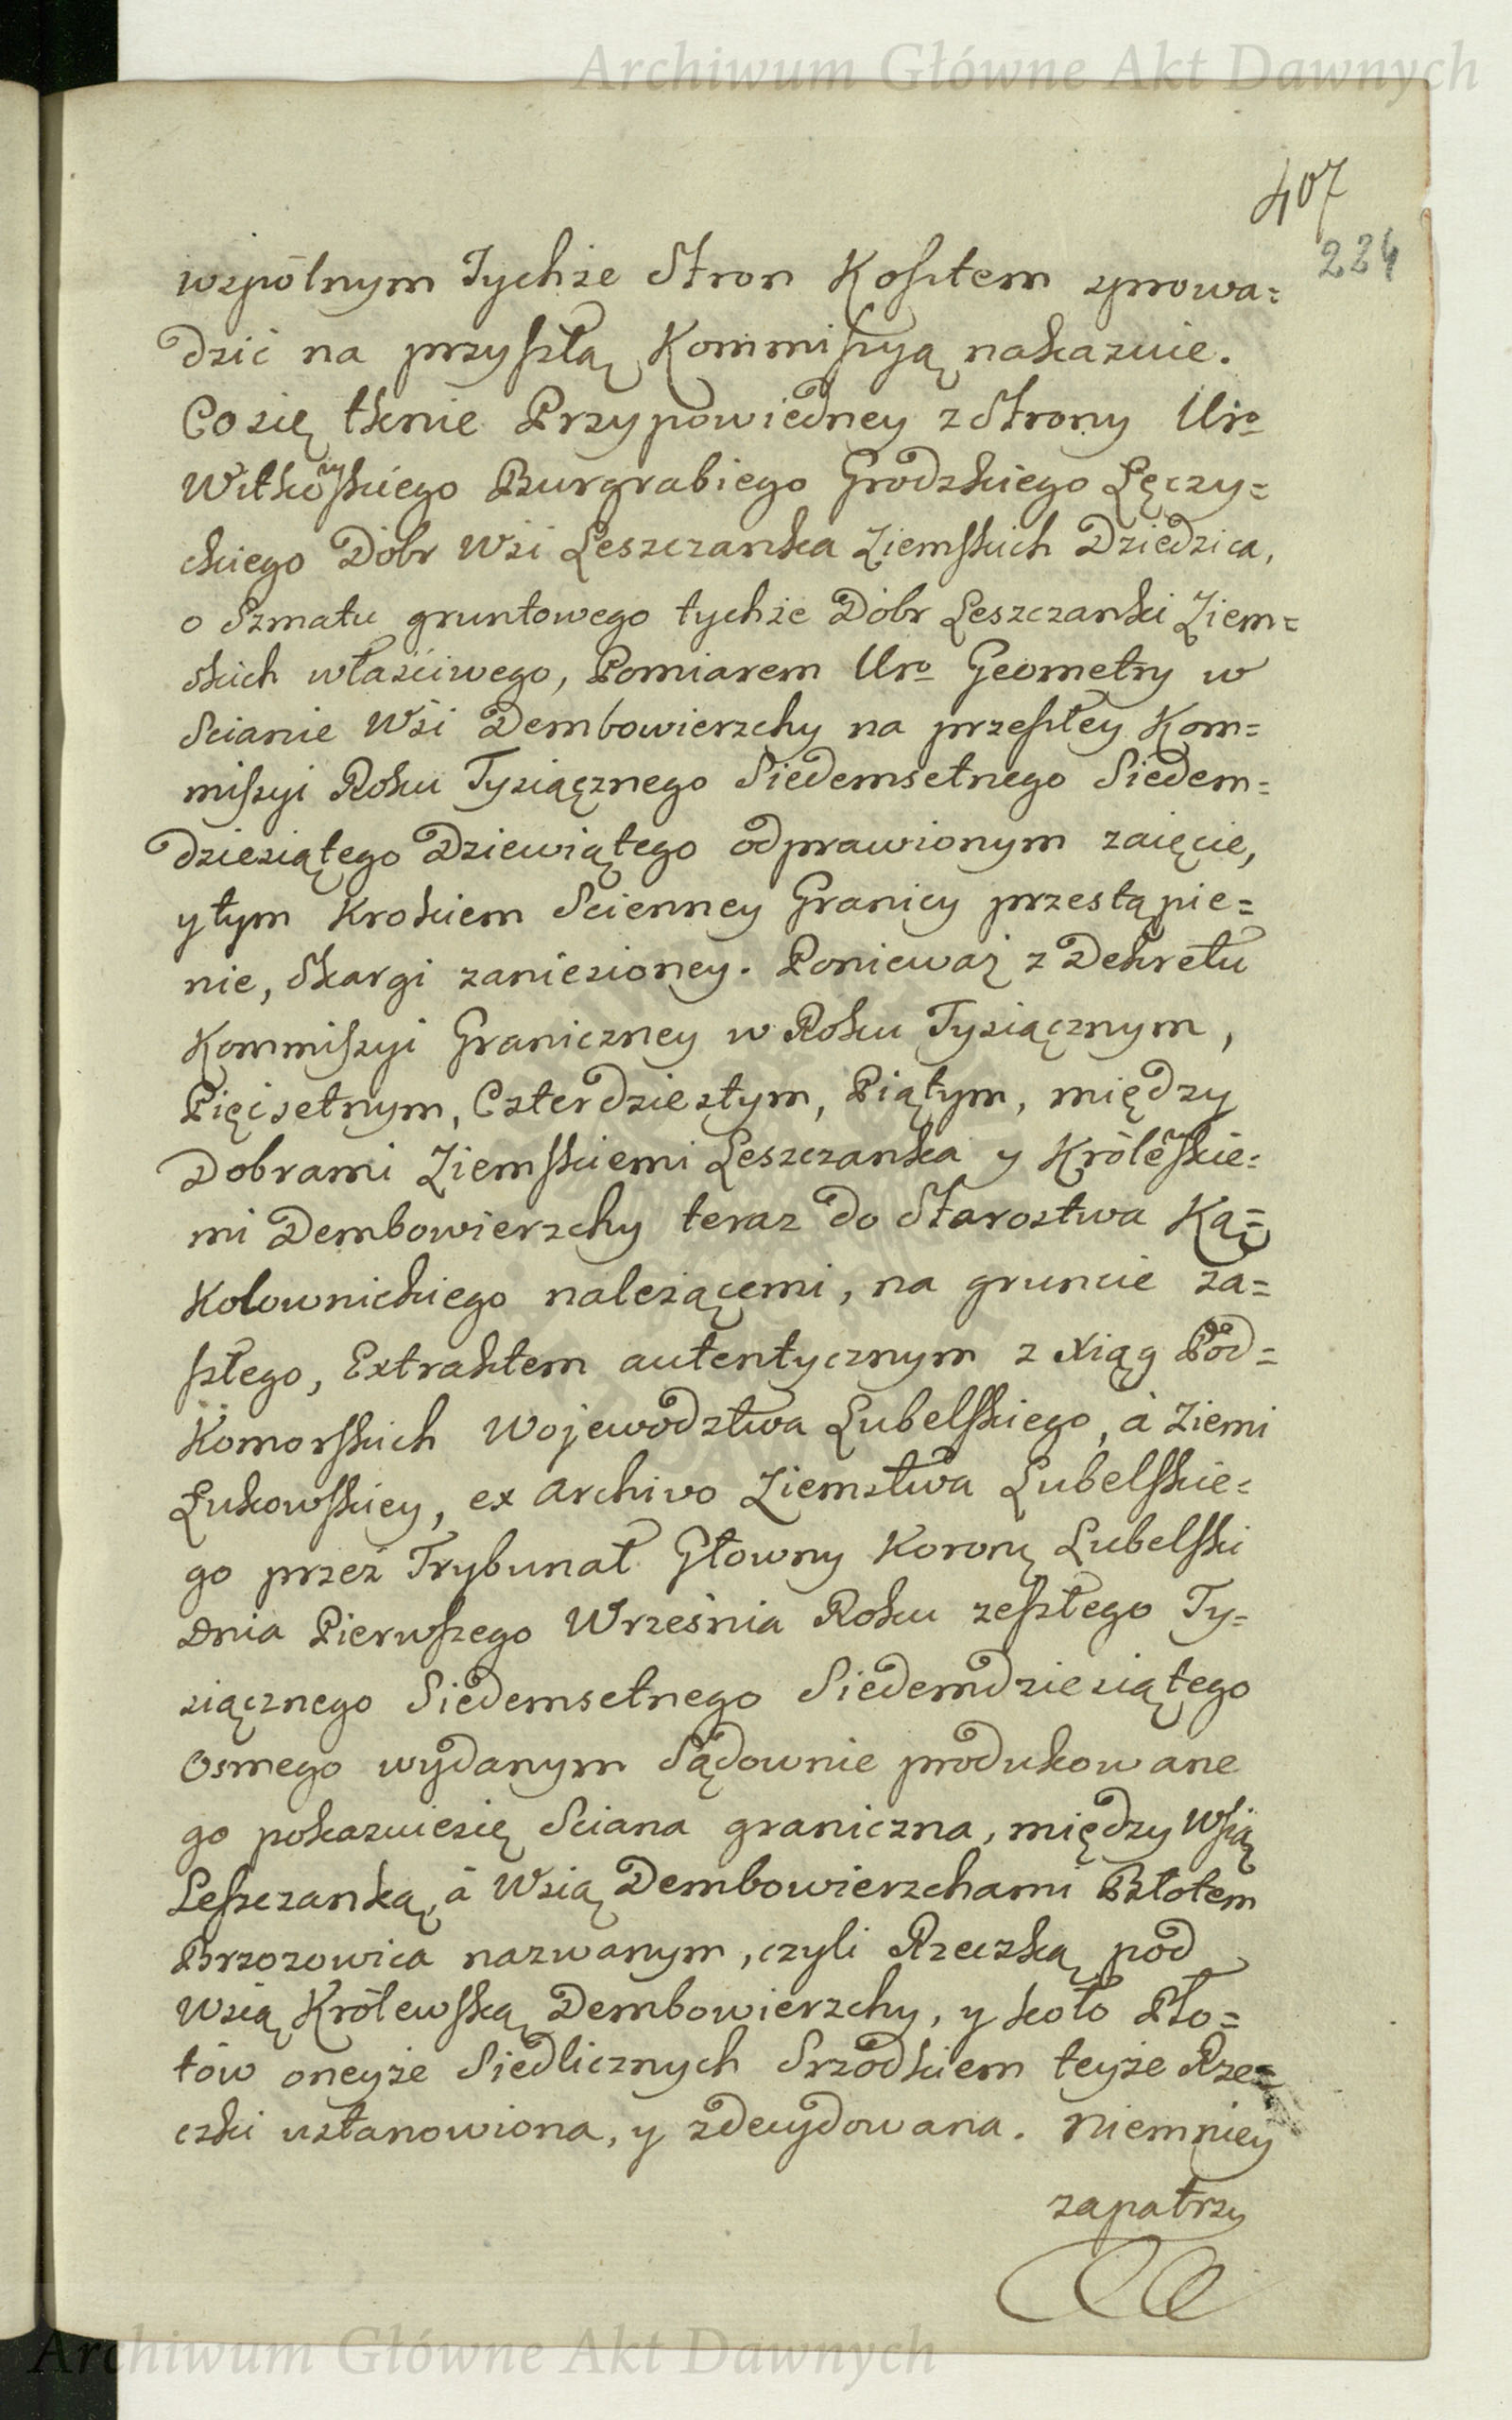 Archiwum Główne Akt Dawnych
407
224
wspólnym Tychże Stron Kosztem zprowa=
dzić na przyszłą Kommiszyą nakazuie.
Co się tknie Przypowiedney z Strony Uro
Witkowskiego Burgrabiego Grodzkiego Łęczy=
ckiego Dóbr Wsi Leszczanka Ziemskich Dziedzica,
o Szmatu gruntowego tychże Dóbr Leszczanki Ziem=
skich właściwego, Pomiarem Uro Geometry w
Scianie Wsi Dembowierzchy na przeszłey Kom=
miszyi Roku Tysiącznego Siedemsetnego Siedem=
dziesiątego Dziewiątego odprawionym zaięcie,
y tym Krokiem Scienney Granicy przestąpie=
nie, Skargi zaniesioney. Ponieważ z Dekretu
Kommiszyi Graniczney w Roku Tysiącznym,
Pięćsetnym, Czterdziestym, Piątym, między
Dobrami Ziemskiemi Leszczanka y Królewskie=
mi Dembowierzchy teraz do Starostwa Ką=
Kolownickiego należącemi, na gruncie za=
szłego, Extraktem autentycznym z Xiąg Pod=
Komorskich Wojewodztwa Lubelskiego, à Ziemi
Łukowskiey, ex Archivo Ziemstwa Lubelskie=
go przez Trybunał Głowny Koronny Lubelski
Dnia Pierwszego Września Roku zeszłego Ty=
siącznego Siedemsetnego Siedemdziesiątego
Osmego wydanym Sądownie produkowane
go pokazuie się Sciana graniczna, między Wsią
Leszczanką, à Wsią Dembowierzchami Błotem
Brzozowica nazwanym, czyli Rzeczką pod
Wsią Królewską Dembowierzchy, y koło Pło=
tów oneyże Siedlicznych Srzodkiem teyże Rze=
czki ustanowiona, y zdecydowana. Niemniey
zapatrzy
Archiwum Główne Akt Dawnych